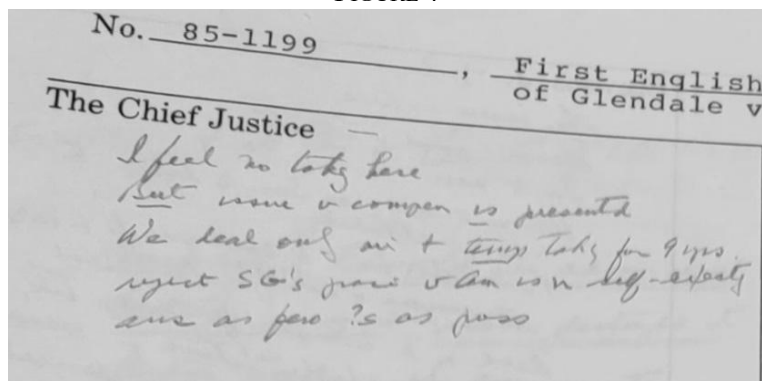 No. 85-1199 , First English
of Glendale v
The Chief Justice —
I feel no takg here
But issue v compen is presentd
We deal only wi t temp takg for 9 yrs.
reject SG's posn v Am is n self-executg
ans as few ?s as poss